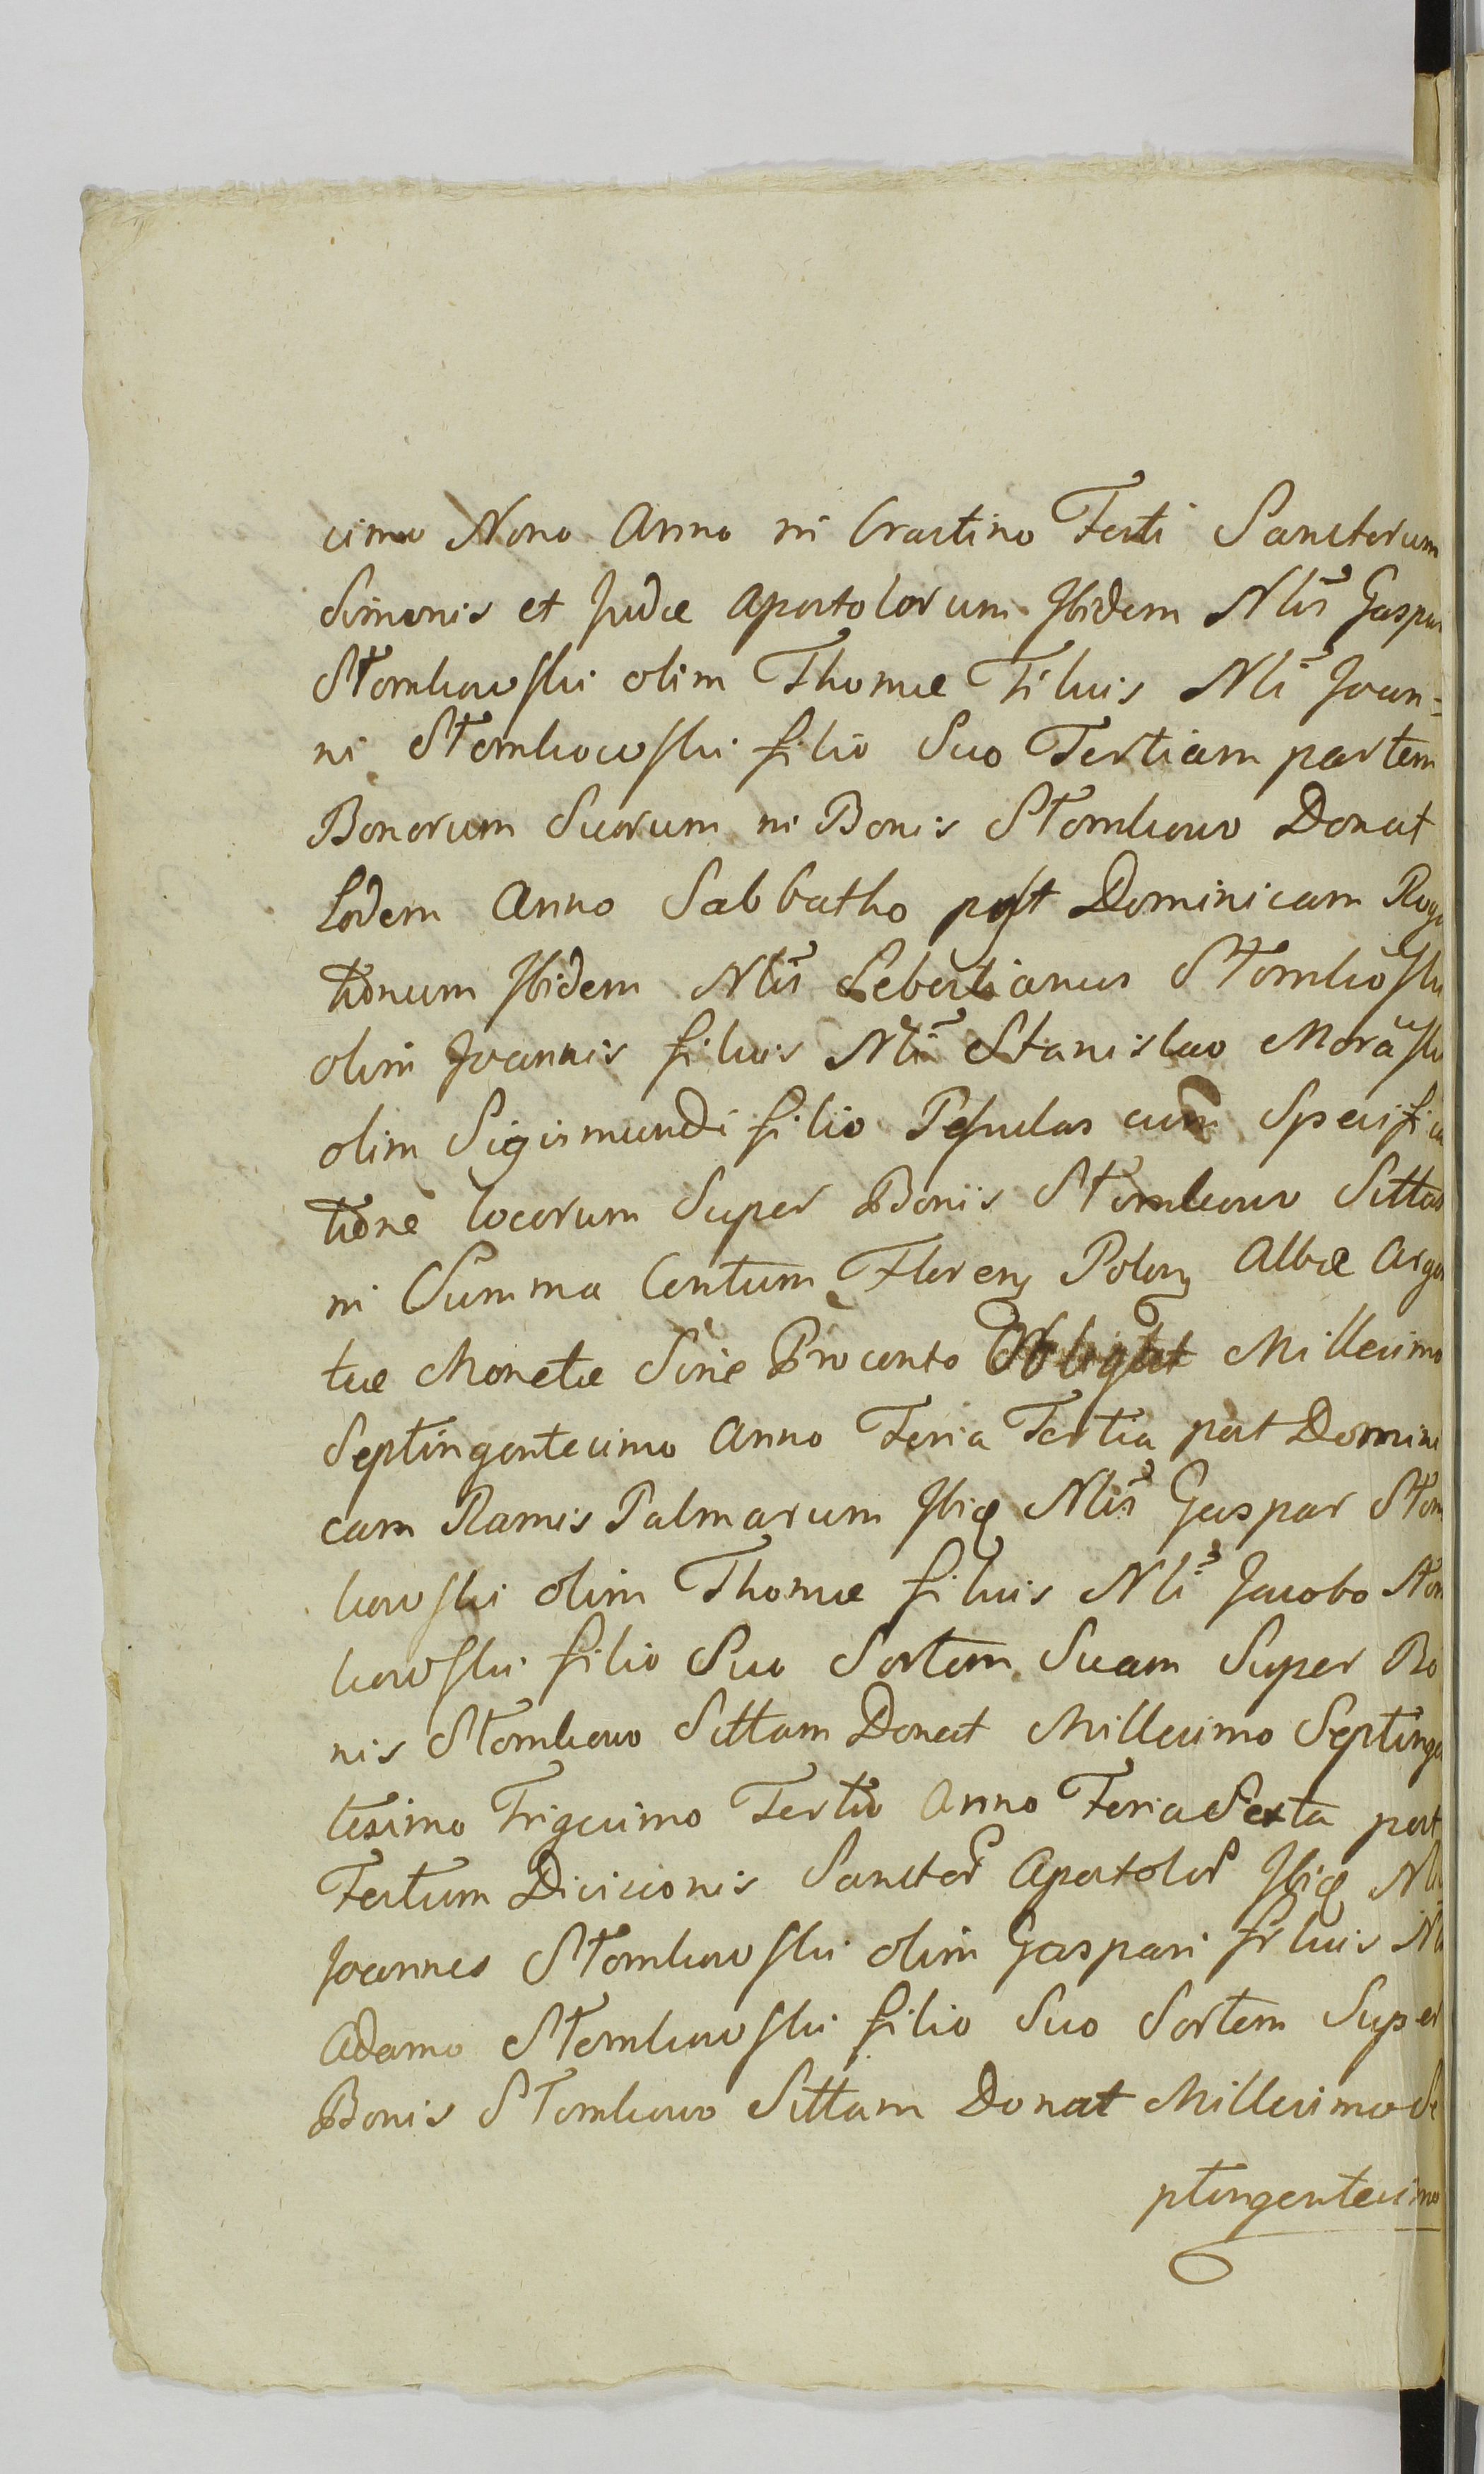 cimo Nono Anno in Crastino Festi Sanctorum
Simonis et Judæ Apostolorum Ibidem Nlis Gaspar
Stomkowski olim Thomæ Filius Nli Joan=
ni Stomkowski filio Suo Tertiam partem
Bonorum Suorum in Bonis Stomkowo Donat
Eodem Anno Sabbatho post Dominicam Roga
tionum Ibidem Nlis Sebestianus Stomkoski
olim Joannis filius Nli Stanislao Moraski
olim Sigismundi filio cum Specifica
tione locorum Super Bonis Stomkowo Sittas
in Summa Centum Floren Polon Albæ Argen
teæ Monetæ Sine Procento Obligat Millesimo
Septingentecimo Anno Feria Tertia post Domini
cam Ramis Palmarum Ibiq Nlis Gaspar Stom
kowski olim Thomæ filius Nli Jacobo Stom
kowski filio Suo Sortem Suam Super Bo
nis Stomkowo Sittam Donat Millesimo Septinge
tesimo Trigesimo Tertio Anno Feria Sexta post
Festum Divisionis Sanctor Apostolor Ibiq Nlis
Joannes Stomkowski olim Gaspari filius Nli
Adamo Stomkowski filio Suo Sortem Super
Bonis Stomkowo Sittam Donat Millesimo Se
ptingentesimo